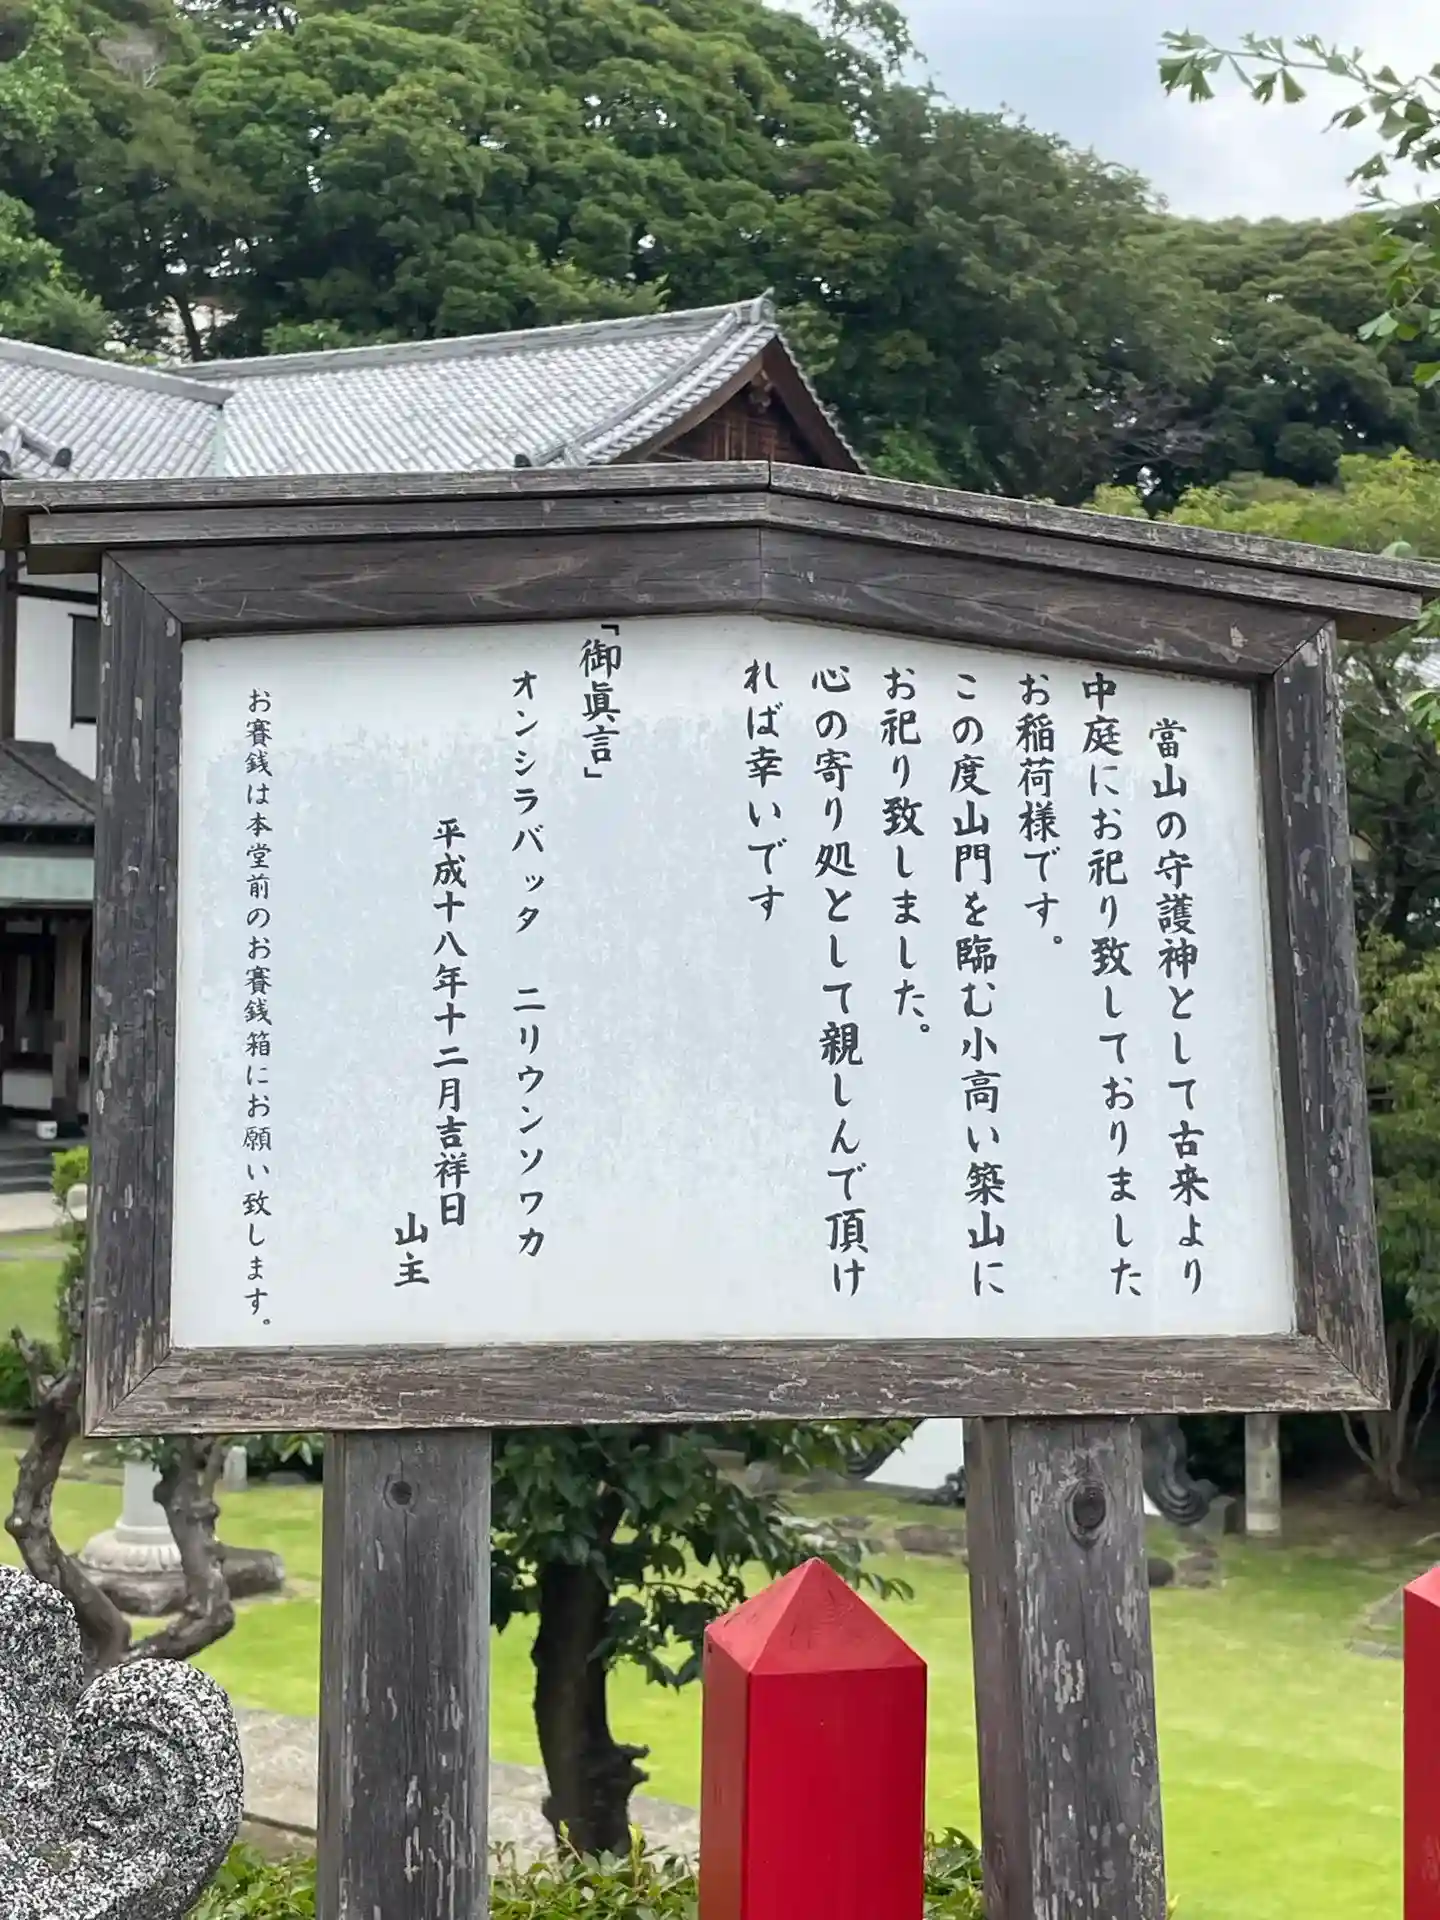 當山の守護神として古来より
中庭にお祀り致しておりました
お稲荷様です。
この度山門を臨む小高い築山に
お祀り致しました。
心の寄り処として親しんで頂け
れば幸いです
「御眞言」
オンシラバッタ　ニリウンソワカ
平成十八年十二月吉祥日
山主
お賽銭は本堂前のお賽銭箱にお願い致します。